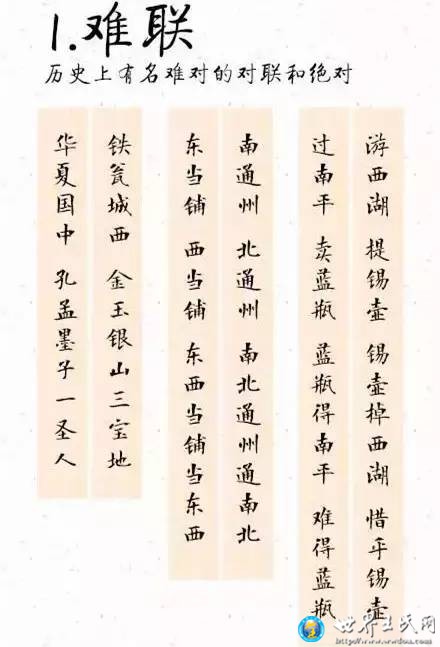 1.难联
历史上有名难对的对联和绝对
游西湖 提锡壶 锡壶掉西湖 惜乎锡壶
过南平 卖蓝瓶 蓝瓶得南平 难得蓝瓶
南通州 北通州 南北通州通南北
东当铺 西当铺 东西当铺当东西
铁瓮城西 金玉银山三宝地
华夏国中 孔孟墨子一圣人
世界王氏网
http://www.wwdou.com